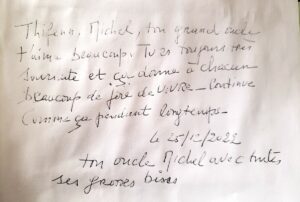 Thifenn, Michel, ton grand oncle
t'aime beaucoup. Tu es toujours très
souriante et ça donne à chacun
beaucoup de joie de vivre - Continue
comme ça pendant longtemps -
le 25/12/2022
ton oncle Michel avec toutes
ses grosses bises